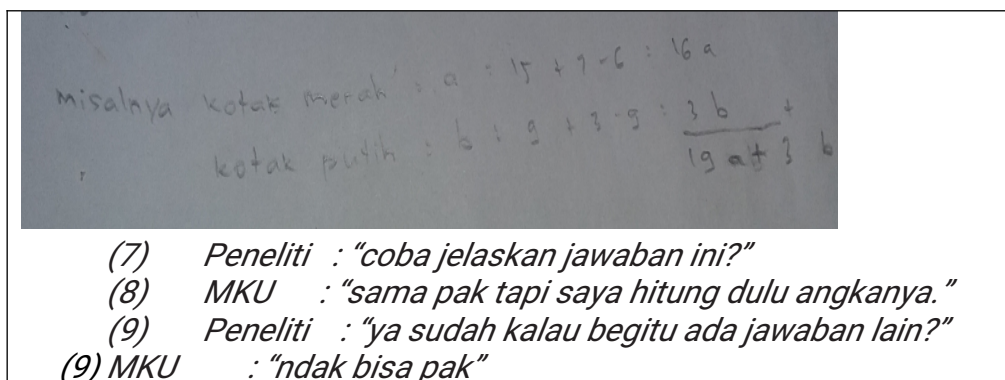 misalnya kotak merah : a : 15 + 7 - 6 : 16 a
kotak putih : b : 9 + 3 - 9 : 3 b +
19 a + 3 b
(7) Peneliti : “coba jelaskan jawaban ini?”
(8) MKU : “sama pak tapi saya hitung dulu angkanya.”
(9) Peneliti : “ya sudah kalau begitu ada jawaban lain?”
(9) MKU : “ndak bisa pak”